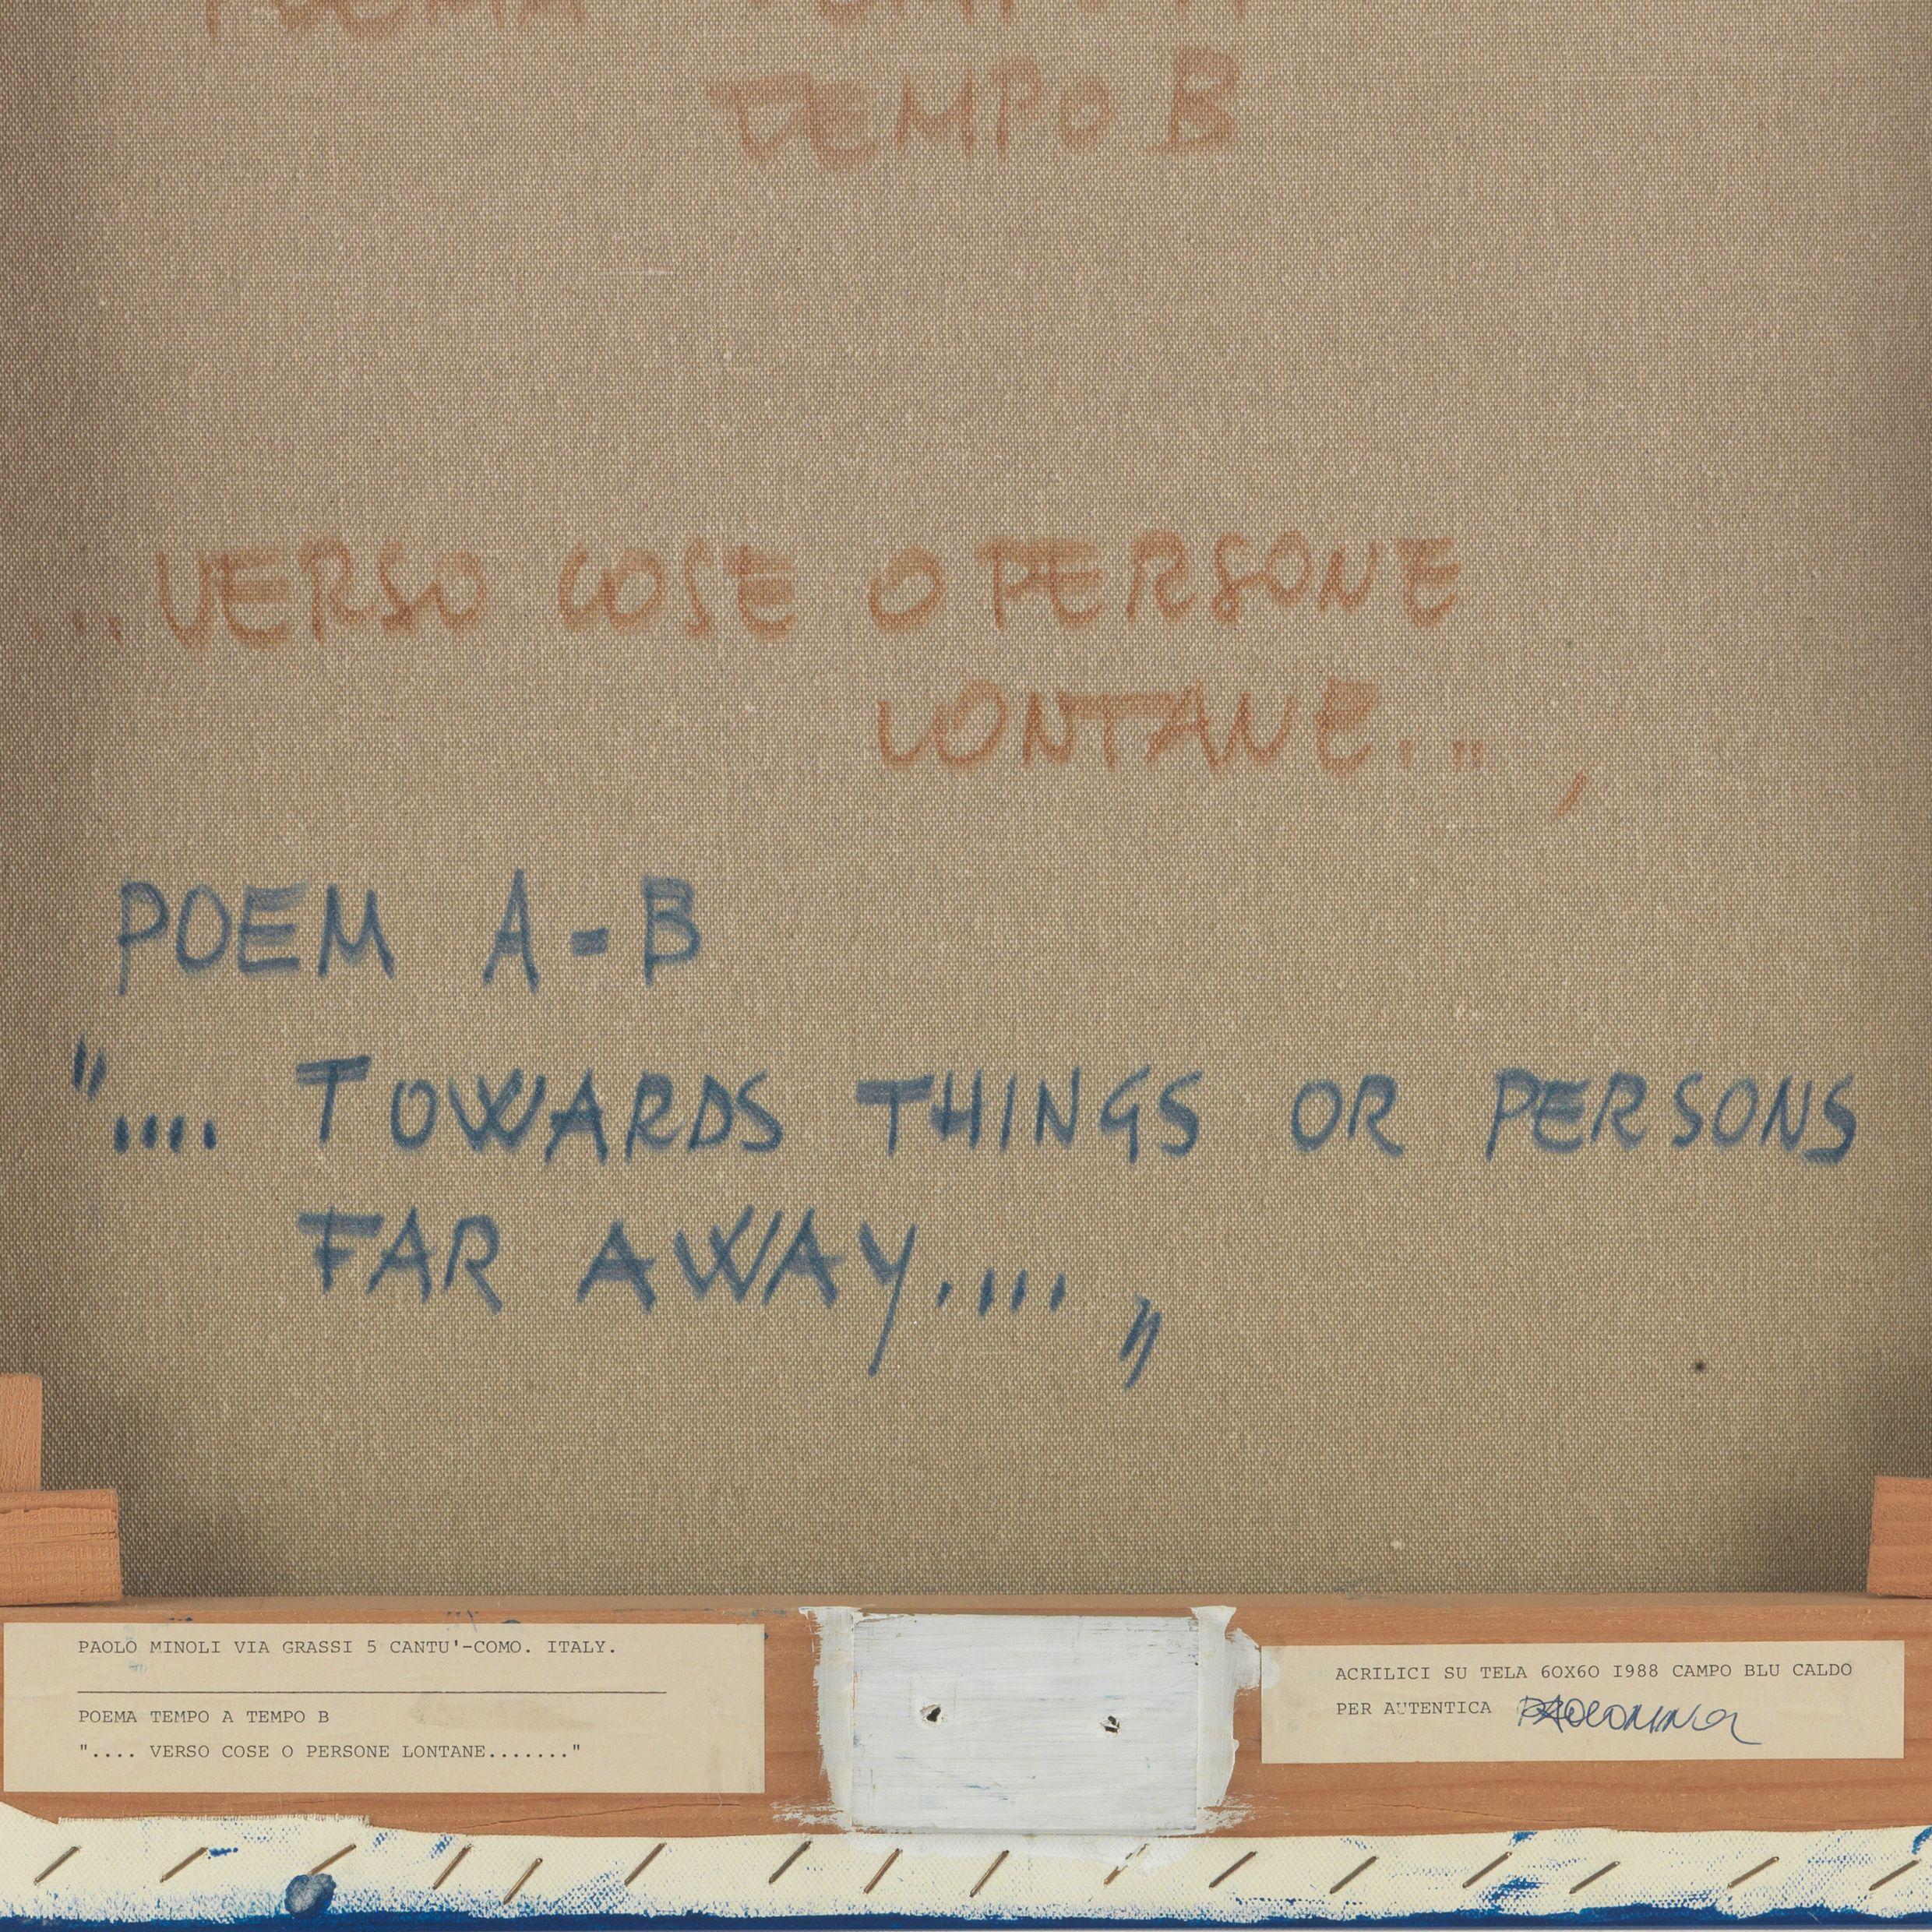 POEMA TEMPO A
TEMPO B
...VERSO COSE O PERSONE
LONTANE... ,
POEM A-B
".... TOWARDS THINGS OR PERSONS
FAR AWAY.... "
PAOLO MINOLI VIA GRASSI 5 CANTU'-COMO. ITALY.
POEMA TEMPO A TEMPO B
".... VERSO COSE O PERSONE LONTANE......."
ACRILICI SU TELA 60X60 I988 CAMPO BLU CALDO
PER AUTENTICA PAOLO MINOLI